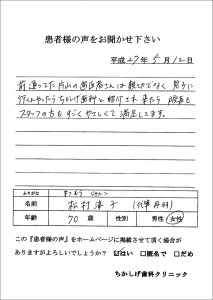 患者様の声をお聞かせ下さい
平成27年5月12日
前通ってた片山の歯医者さんは親切でなく 息子に
行くんやったらちかしげ歯科と紹介され 来たら 院長も
スタッフの方もすごくやさしくて満足してます。
ふりがな まつむら じゅんこ
名前 松村 淳子 (代筆
年齢 70歳 性別 男性・女性
この『患者様の声』をホームページに掲載させて頂く場合が
ありますがよろしいでしょうか？ ☑はい □匿名で □だめ
ちかしげ歯科クリニック